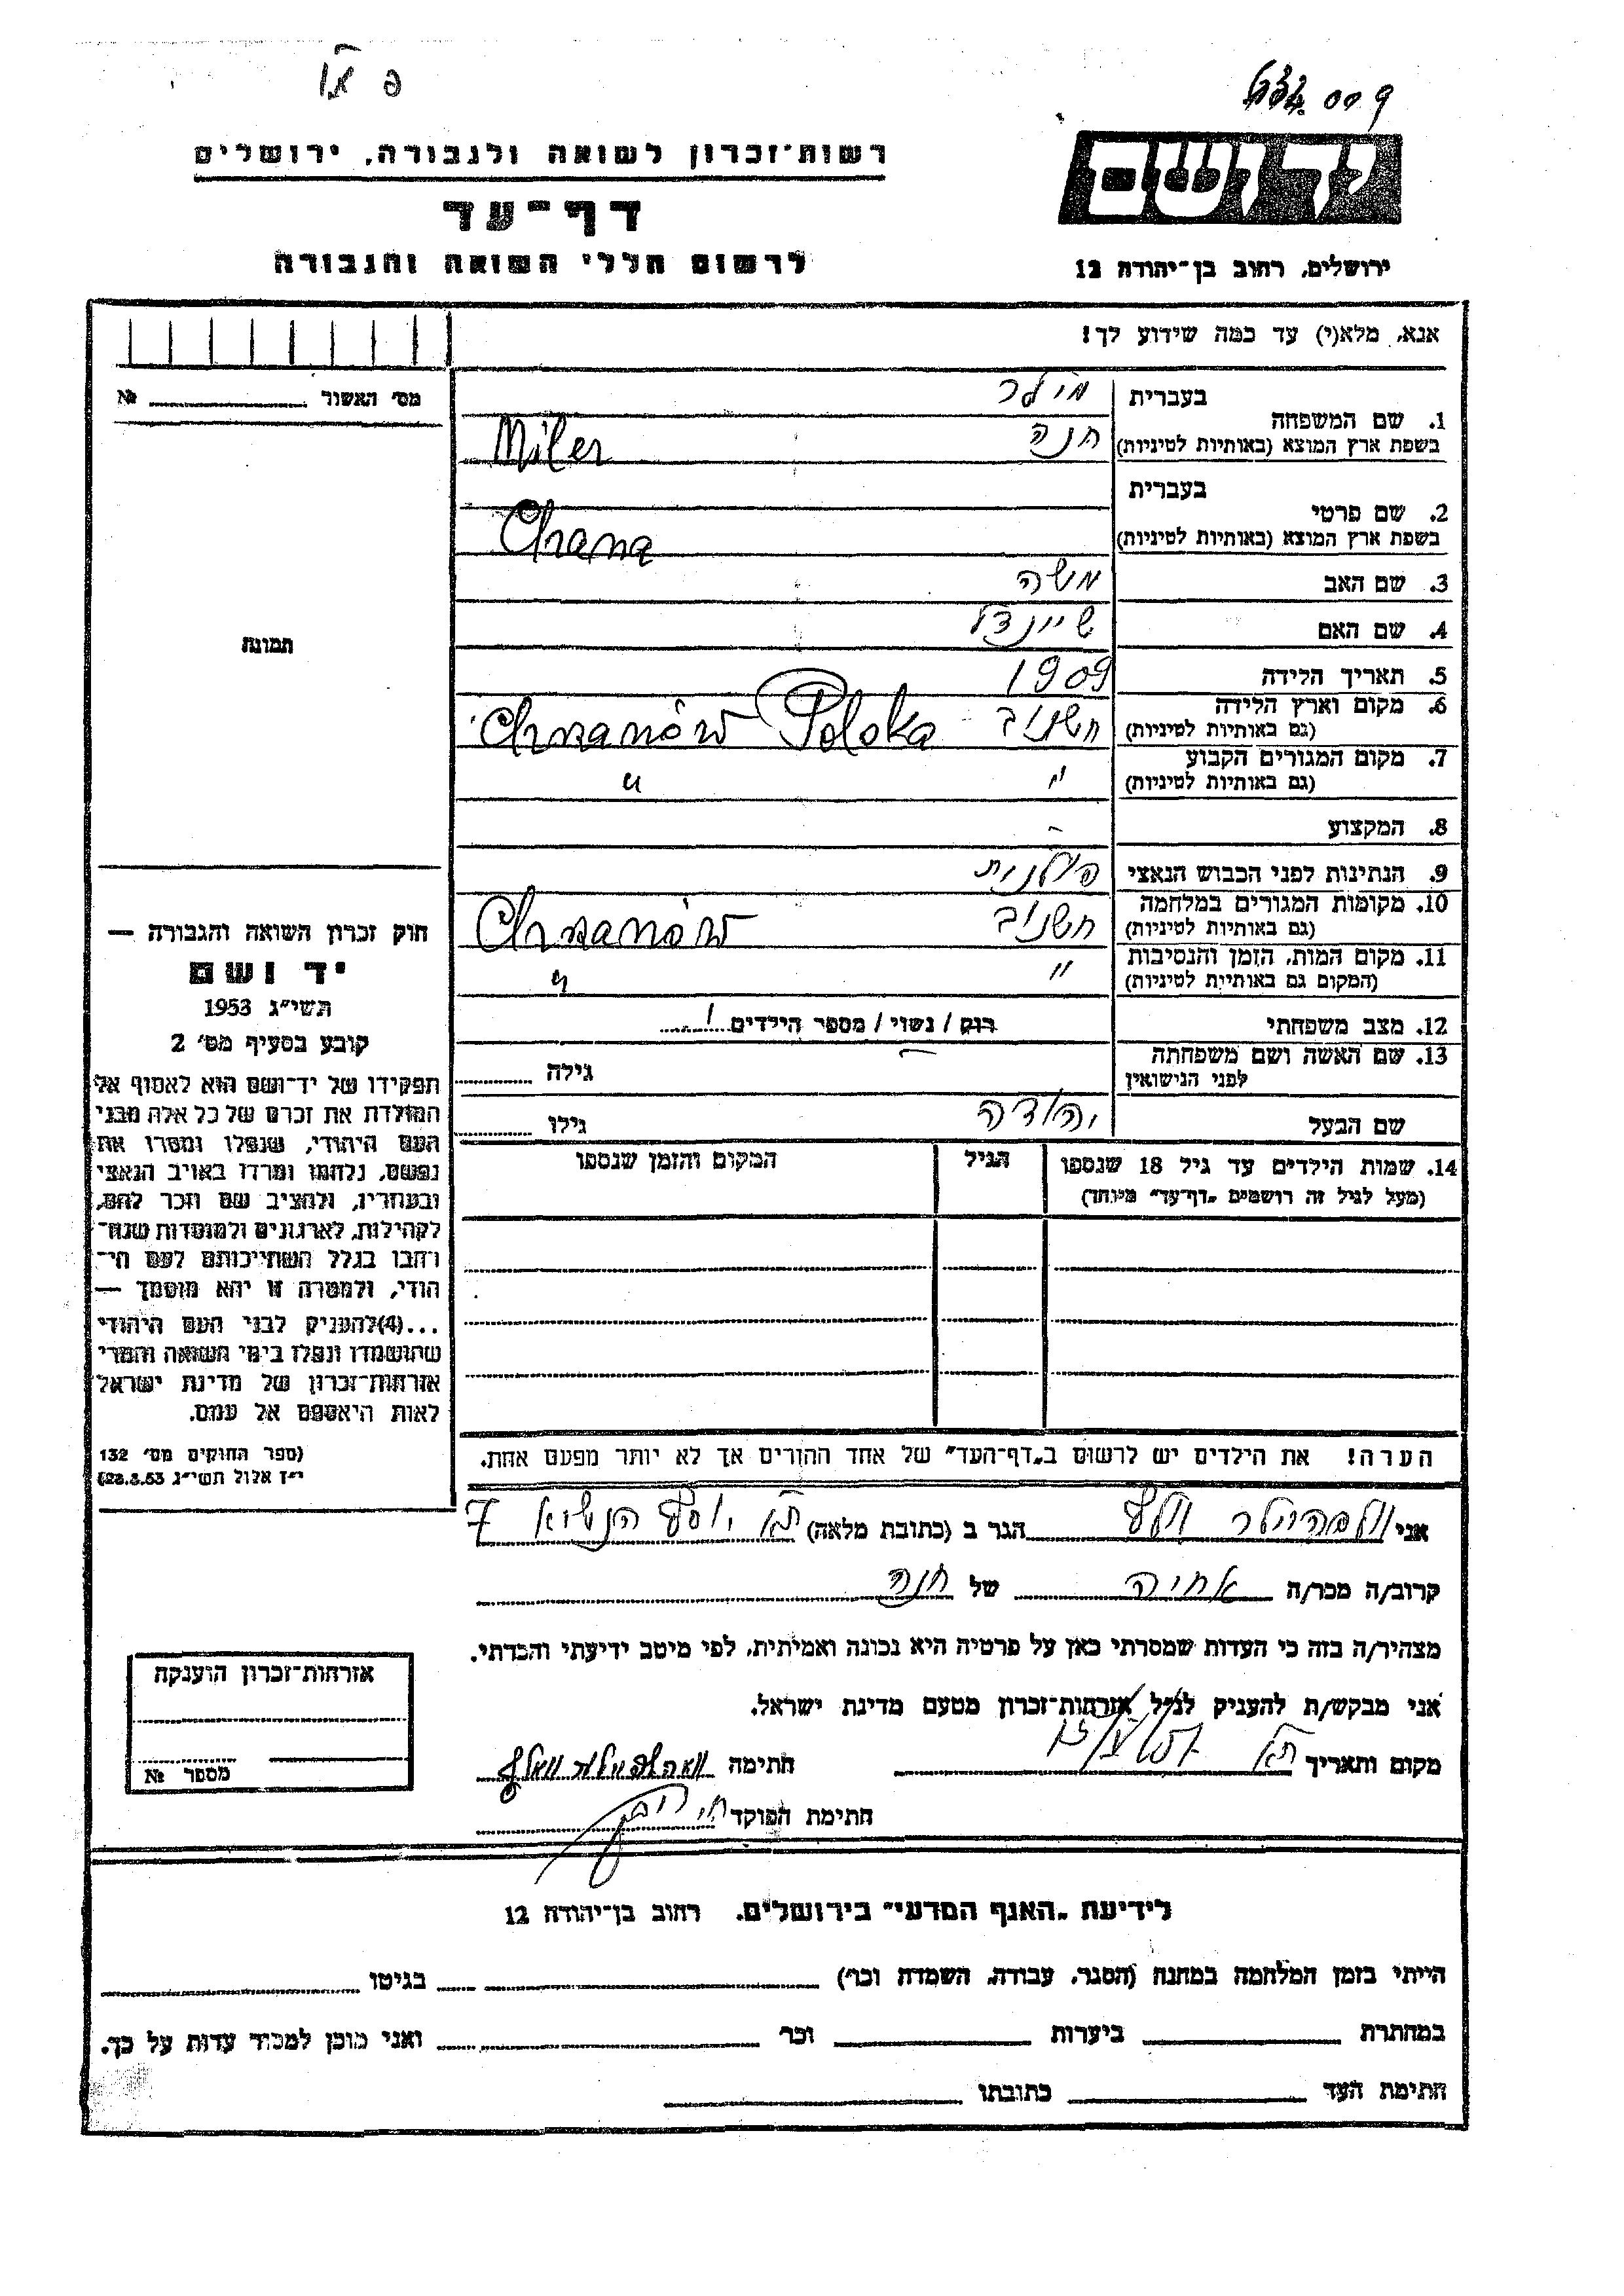 רשות־זכרון לשואה ולגבורה, ירושלים
יד ושם
דף־עד
לרשום חללי השואה והגבורה
ירושלים, רחוב בן־יהודה 12
אנא, מלא(י) עד כמה שידוע לך!
מס׳ האשור №
1. שם המשפחה בעברית מילר
בשפת ארץ המוצא (באותיות לטיניות) Miler חנה
2. שם פרטי בעברית
בשפת ארץ המוצא (באותיות לטיניות) Chana
3. שם האב משה
4. שם האם שיינדל
5. תאריך הלידה 1909
6. מקום וארץ הלידה חשנוב Chrzanów Polska
(גם באותיות לטיניות)
7. מקום המגורים הקבוע " "
(גם באותיות לטיניות)
8. המקצוע -
9. הנתינות לפני הכבוש הנאצי פולנית
10. מקומות המגורים במלחמה חשנוב Chrzanów
(גם באותיות לטיניות)
11. מקום המות, הזמן והנסיבות " "
(המקום גם באותיות לטיניות)
12. מצב משפחתי רוק / נשוי / מספר הילדים 1
13. שם האשה ושם משפחתה - גילה
לפני הנישואין
שם הבעל יהודה גילו
14. שמות הילדים עד גיל 18 שנספו הגיל המקום והזמן שנספו
(מעל לגיל זה רושמים „דף־עד״ מיוחד)
הערה! את הילדים יש לרשום ב„דף־העד״ של אחד ההורים אך לא יותר מפעם אחת.
תמונת
חוק זכרון השואה והגבורה —
יד ושם
תשי״ג 1953
קובע בסעיף מס׳ 2
תפקידו של יד־ושם הוא לאסוף אל
המולדת את זכרם של כל אלה מבני
העם היהודי, שנפלו ומסרו את
נפשם, נלחמו ומרדו באויב הנאצי
ובעוזריו, ולהציב שם וזכר להם,
לקהילות, לארגונים ולמוסדות שנח־
רבו בגלל השתייכותם לעם הי־
הודי, ולמטרה זו יהא מוסמך —
...(4)להעניק לבני העם היהודי
שהושמדו ונפלו בימי השואה והמרי
אזרחות־זכרון של מדינת ישראל
לאות היאספם אל עמם.
(ספר החוקים מס׳ 132
י״ז אלול תשי״ג 28.8.53)
אני הגר ב (כתובת מלאה) ת״א יוסף הנשיא 7
קרוב/ה מכר/ה אחיה של חנה
מצהיר/ה בזה כי העדות שמסרתי כאן על פרטיה היא נכונה ואמיתית, לפי מיטב ידיעתי והכרתי.
אני מבקש/ת להעניק לנ״ל אזרחות־זכרון מטעם מדינת ישראל.
מקום ותאריך ת״א חתימה
חתימת הפוקד
אזרחות־זכרון הוענקה
מספר №
לידיעת „האגף המדעי״ בירושלים, רחוב בן־יהודה 12
הייתי בזמן המלחמה במחנה (הסגר, עבודה, השמדה וכו׳) בגיטו
במחתרת ביערות וכו׳ ואני מוכן למסור עדות על כך.
חתימת העד כתובתו